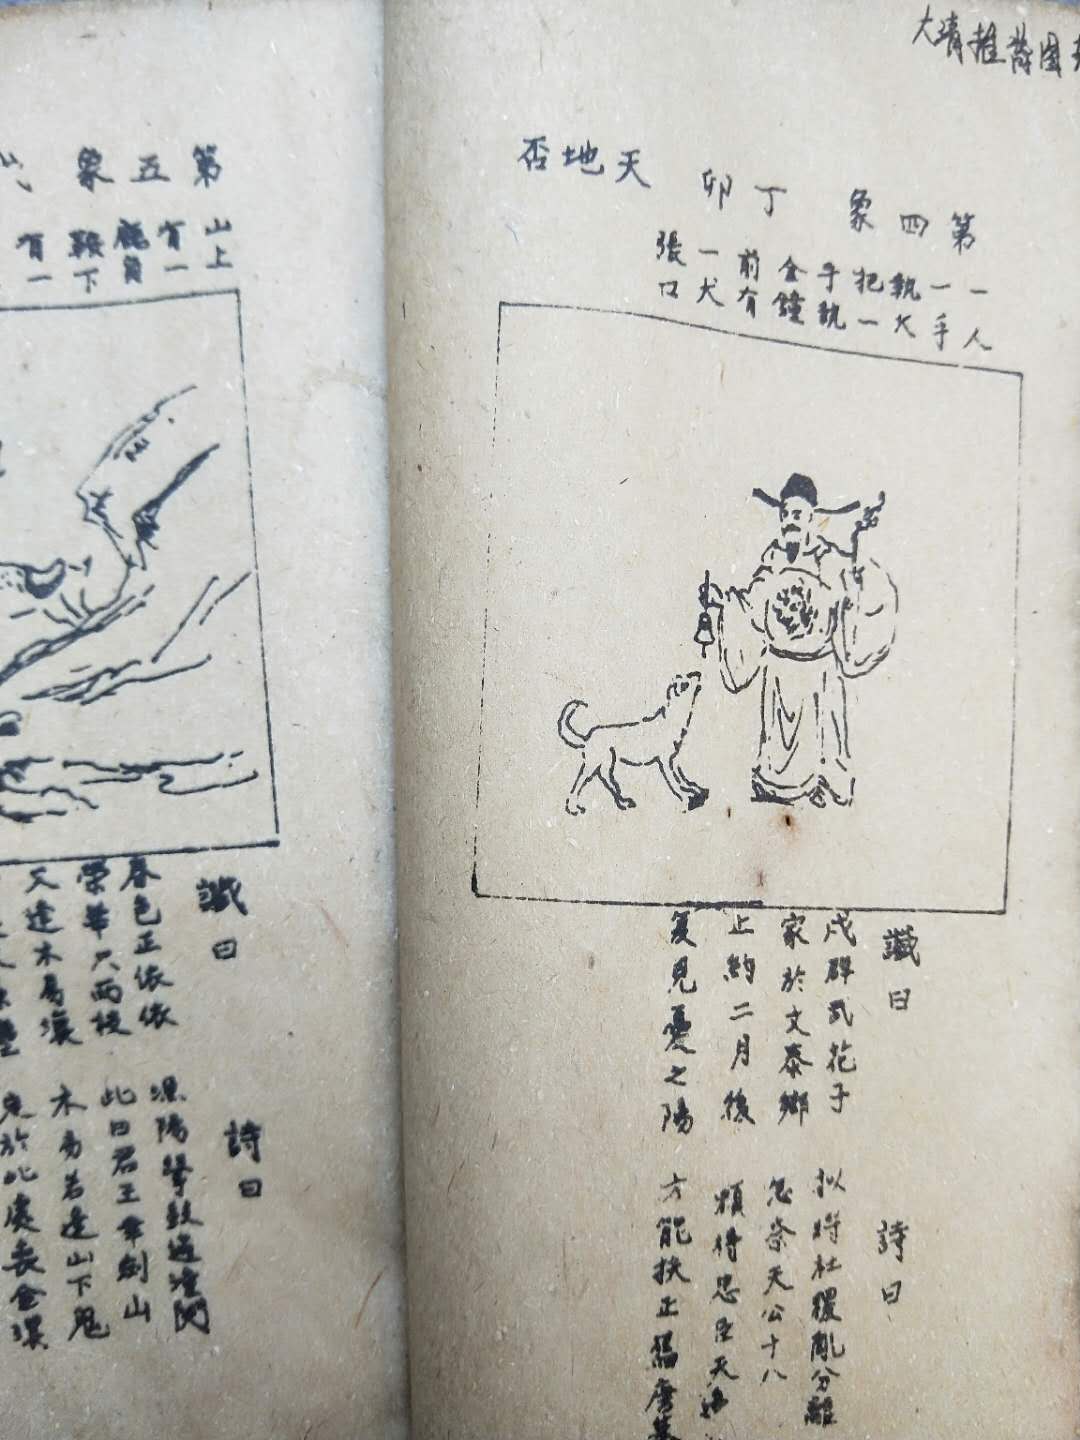 大清推背图
第四象 丁卯 天地否
一人
一手
執火
把一
手執
金鐘
前有
一犬
張口
讖曰
戌辟武花子
家於文泰鄉
止約二月後
复見憂之陽
詩曰
拟将杜稷亂分離
怎奈天公十八
賴得忠臣天
方能扶正舊唐基
第五象
山上
有一
鹿負
鞍下
有一
讖曰
春色正依依
榮華只兩枝
又逢木易
詩曰
漁陽鼙鼓過潼関
此日君王幸劍山
木易若逢山下鬼
定於此處丧金環